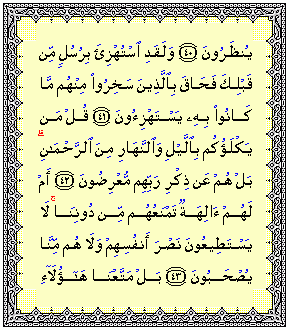 يُنظَرُونَ ٤٠ وَلَقَدِ ٱسْتُهْزِئَ بِرُسُلٍ مِّن
قَبْلِكَ فَحَاقَ بِٱلَّذِينَ سَخِرُوا۟ مِنْهُم مَّا
كَانُوا۟ بِهِۦ يَسْتَهْزِءُونَ ٤١ قُلْ مَن
يَكْلَؤُكُم بِٱلَّيْلِ وَٱلنَّهَارِ مِنَ ٱلرَّحْمَـٰنِ ۗ
بَلْ هُمْ عَن ذِكْرِ رَبِّهِم مُّعْرِضُونَ ٤٢ أَمْ
لَهُمْ ءَالِهَةٌ تَمْنَعُهُم مِّن دُونِنَا ۚ لَا
يَسْتَطِيعُونَ نَصْرَ أَنفُسِهِمْ وَلَا هُم مِّنَّا
يُصْحَبُونَ ٤٣ بَلْ مَتَّعْنَا هَـٰٓؤُلَآءِ